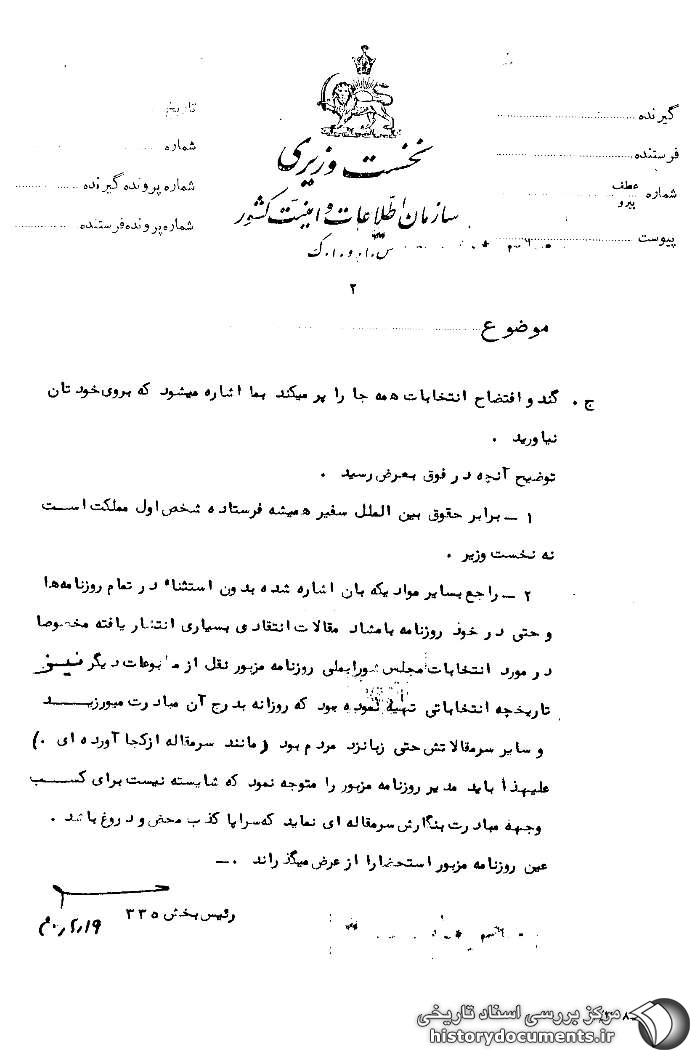 گیرنده
فرستنده
شماره عطف پیرو
پیوست
نخست وزیری
سازمان اطلاعات و امنیت کشور
س.ا.و.ا.ک
تاریخ
شماره
شماره پرونده گیرنده
شماره پرونده فرستنده
۲
موضوع
ج . گند و افتضاح انتخابات همه جا را پر میکند بما اشاره میشود که بروی خودتان
نیاورید .
توضیح آنچه در فوق بعرض رسید .
۱ – برابر حقوق بین الملل سفیر همیشه فرستاده شخص اول مملکت است
نه نخست وزیر .
۲ – راجع بسایر موادیکه بان اشاره شده بدون استثناء در تمام روزنامه‌ها
و حتی در خود روزنامه بامشاد مقالات انتقادی بسیاری انتشار یافته مخصوصا
در مورد انتخابات مجلس شورایملی روزنامه مزبور نقل از مطبوعات دیگر نیز
تاریخچه انتخاباتی تهیه نموده بود که روزانه بدرج آن مبادرت میورزید
و سایر سرمقالاتش حتی زبانزد مردم بود (مانند سرمقاله ازکجا آورده ای .)
علیهذا باید مدیر روزنامه مزبور را متوجه نمود که شایسته نیست برای کسب
وجهه مبادرت بنگارش سرمقاله ای نماید که سراپا کذب محض و دروغ باشد .
عین روزنامه مزبور استحضارا از عرض میگذراند .–
رئیس بخش ۳۳۵
مرکز بررسی اسناد تاریخی
historydocuments.ir